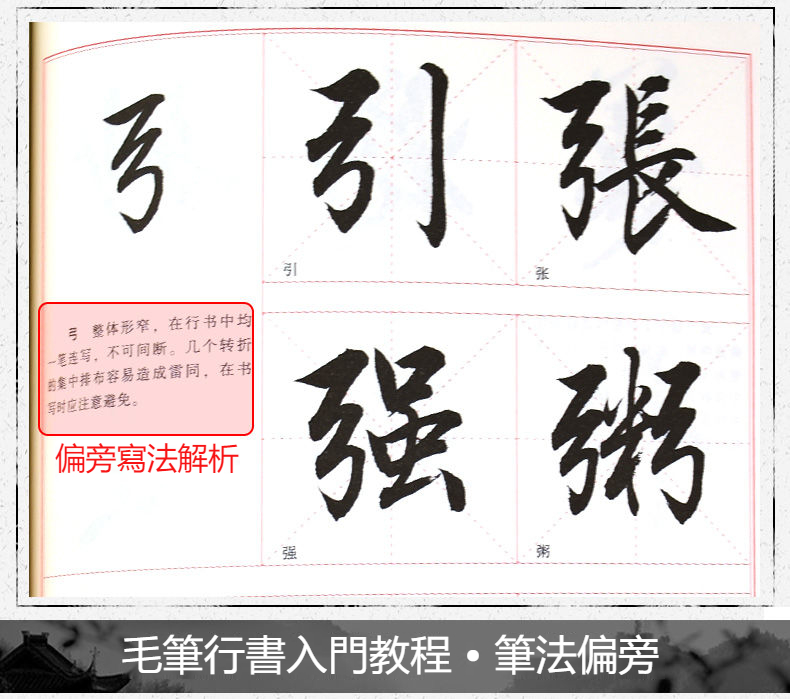 弓
引
張
引
张
弓 整体形窄，在行书中均
一笔连写，不可间断。几个转折
的集中排布容易造成雷同，在书
写时应注意避免。
偏旁寫法解析
强
粥
强
粥
毛筆行書入門教程•筆法偏旁